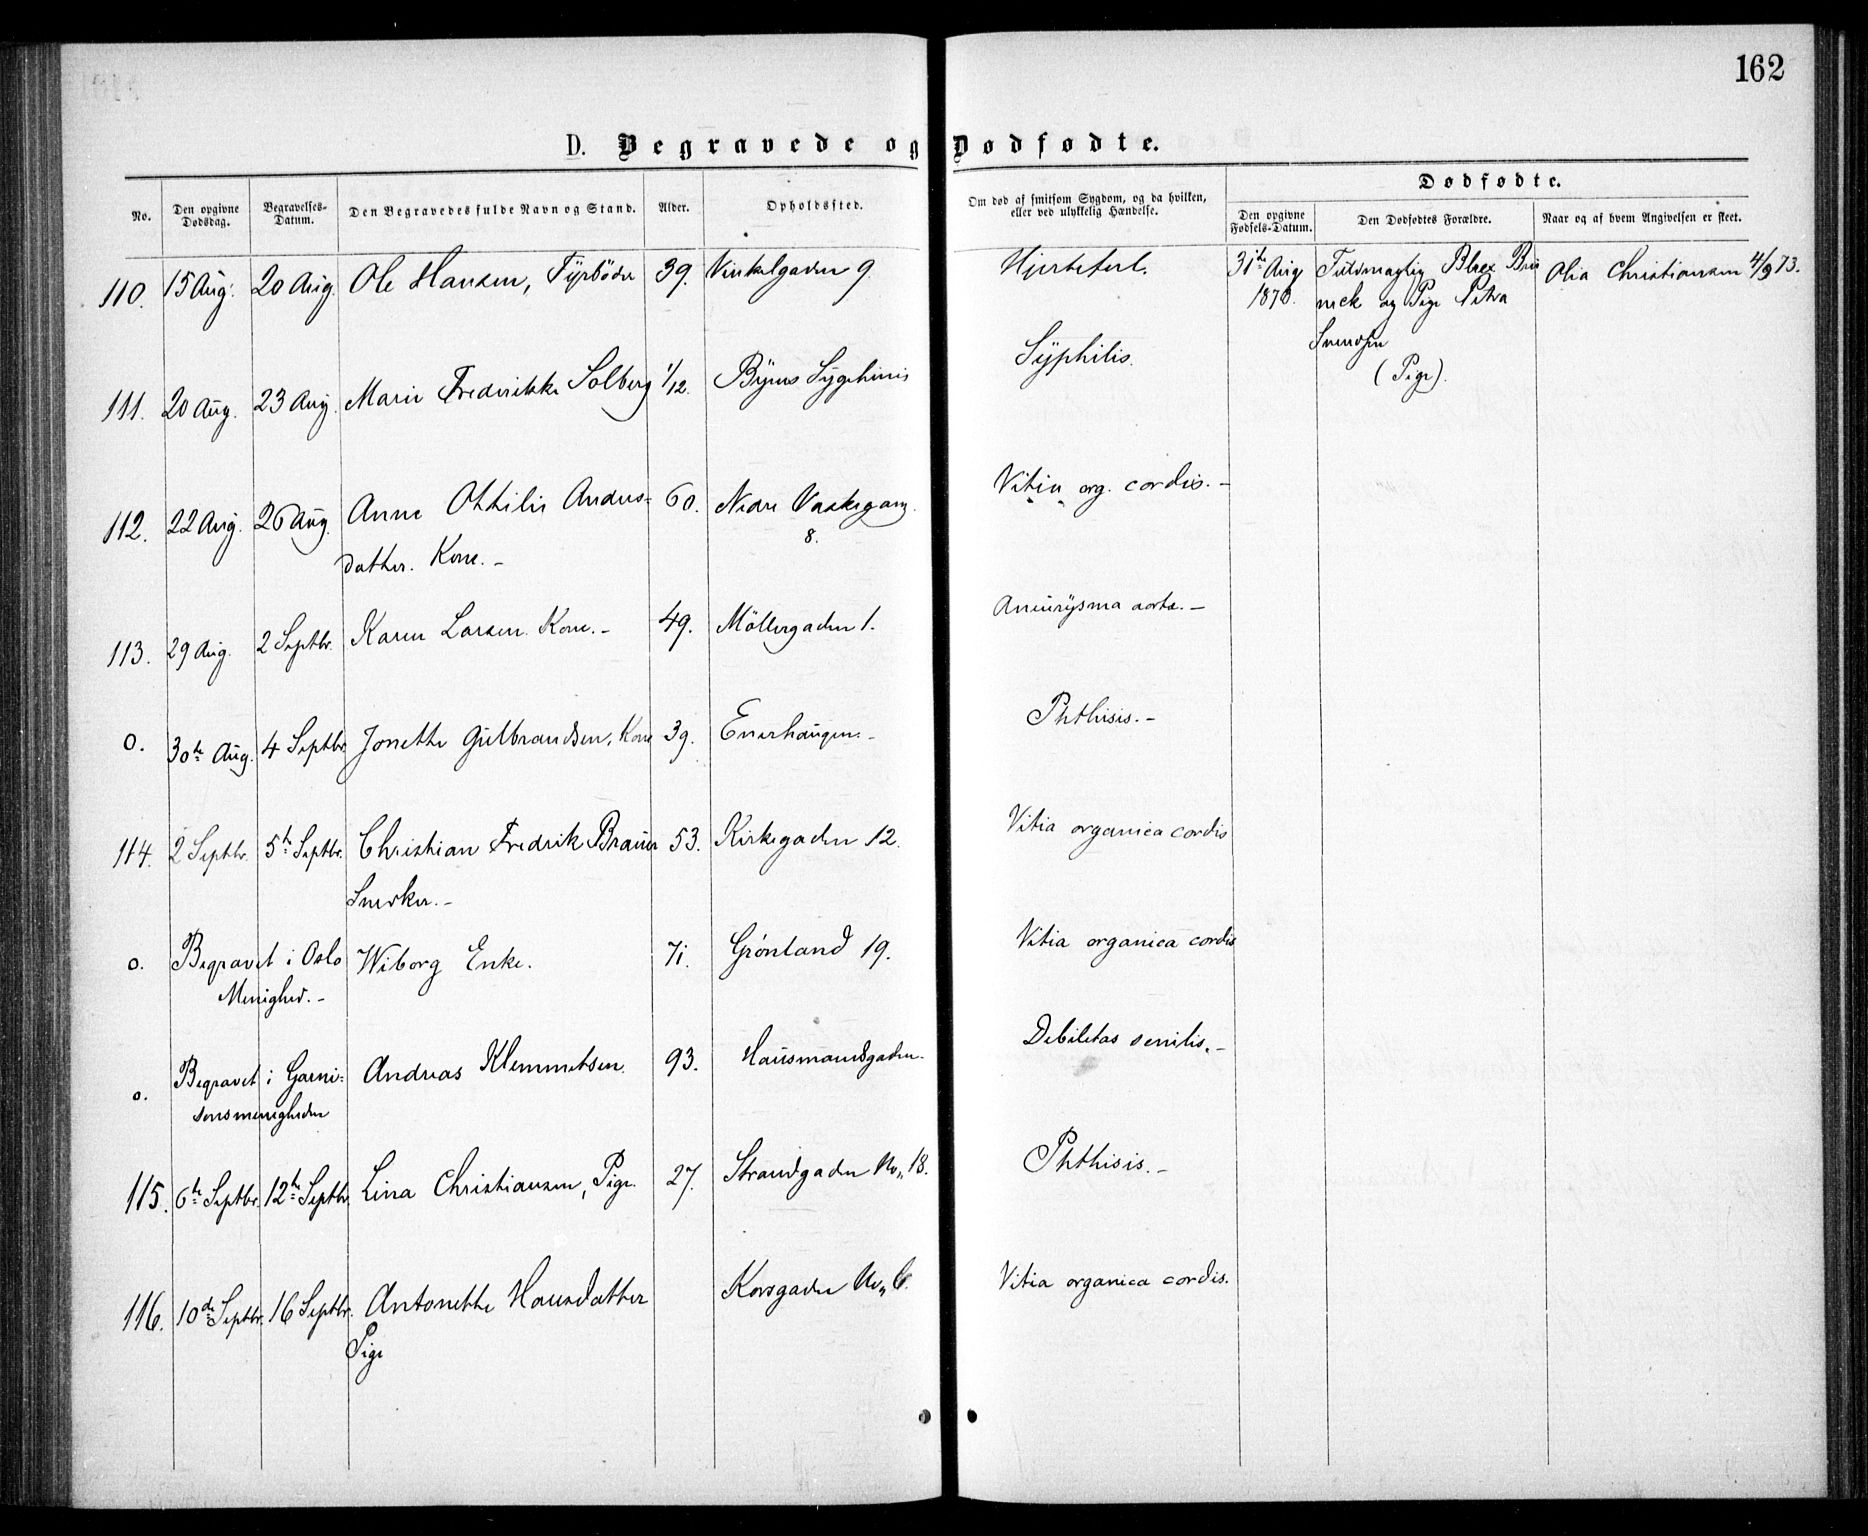 162
D. Begravede og Dødfødte.
No. Den opgivne Dødsdag. Begravelses-Datum. Den Begravedes fulde Navn og Stand. Alder. Opholdssted. Om død af smitsom Sygdom, og da hvilken, eller ved ulykkelig Hændelse. Dødfødte. Den opgivne Fødsels-Datum. Den Dødfødtes Forældre. Naar og af hvem Angivelsen er skeet.
110. 15 Aug. 20 Aug. Ole Hansen, Fyrböder 39. Vinkelgaden 9. Hjertefeil. 31te Aug 1873. Fuldmægtig
neck og Pige Petra
Svendsen
(Pige).
Olia Christiansen 4/9 73.
111. 20 Aug. 23 Aug. Marie Frederikke Solberg 1/12. Byens Sygehuus Syphilis.
112. 22 Aug. 26 Aug. Anne Ottilie Anders-
datter. Kone. – 60. Nedre Vaskegang
8. Vitia org. cordis. –
113. 29 Aug. 2 Septbr. Karen Larsen. Kone. – 49. Möllergaden 1. Aneurysma aortæ. –
0. 30te Aug. 4 Septbr. Jonette Gulbrandsen, Kone 39. Enerhaugen. – Phthisis. –
114. 2 Septbr. 5te Septbr. Christian Fredrik Brauer
Snedker. – 53. Kirkegaden 12. Vitia organica cordis
0. Begravet i Oslo
Menighed. – Wiborg Enke. 71. Grønland 19. Vitia organica cordis
0. Begravet i Garni-
sonsmenigheden Andreas Klemmetsen. 93. Hausmandsgaden. Debilitas senilis. –
115. 6te Septbr. 12te Septbr. Lina Christiansen, Pige. 27. Strandgaden No. 18. Phthisis. –
116. 10de Septbr. 16 Septbr. Antonette Hansdatter
Pige Korsgaden No. 6. Vitia organica cordis.